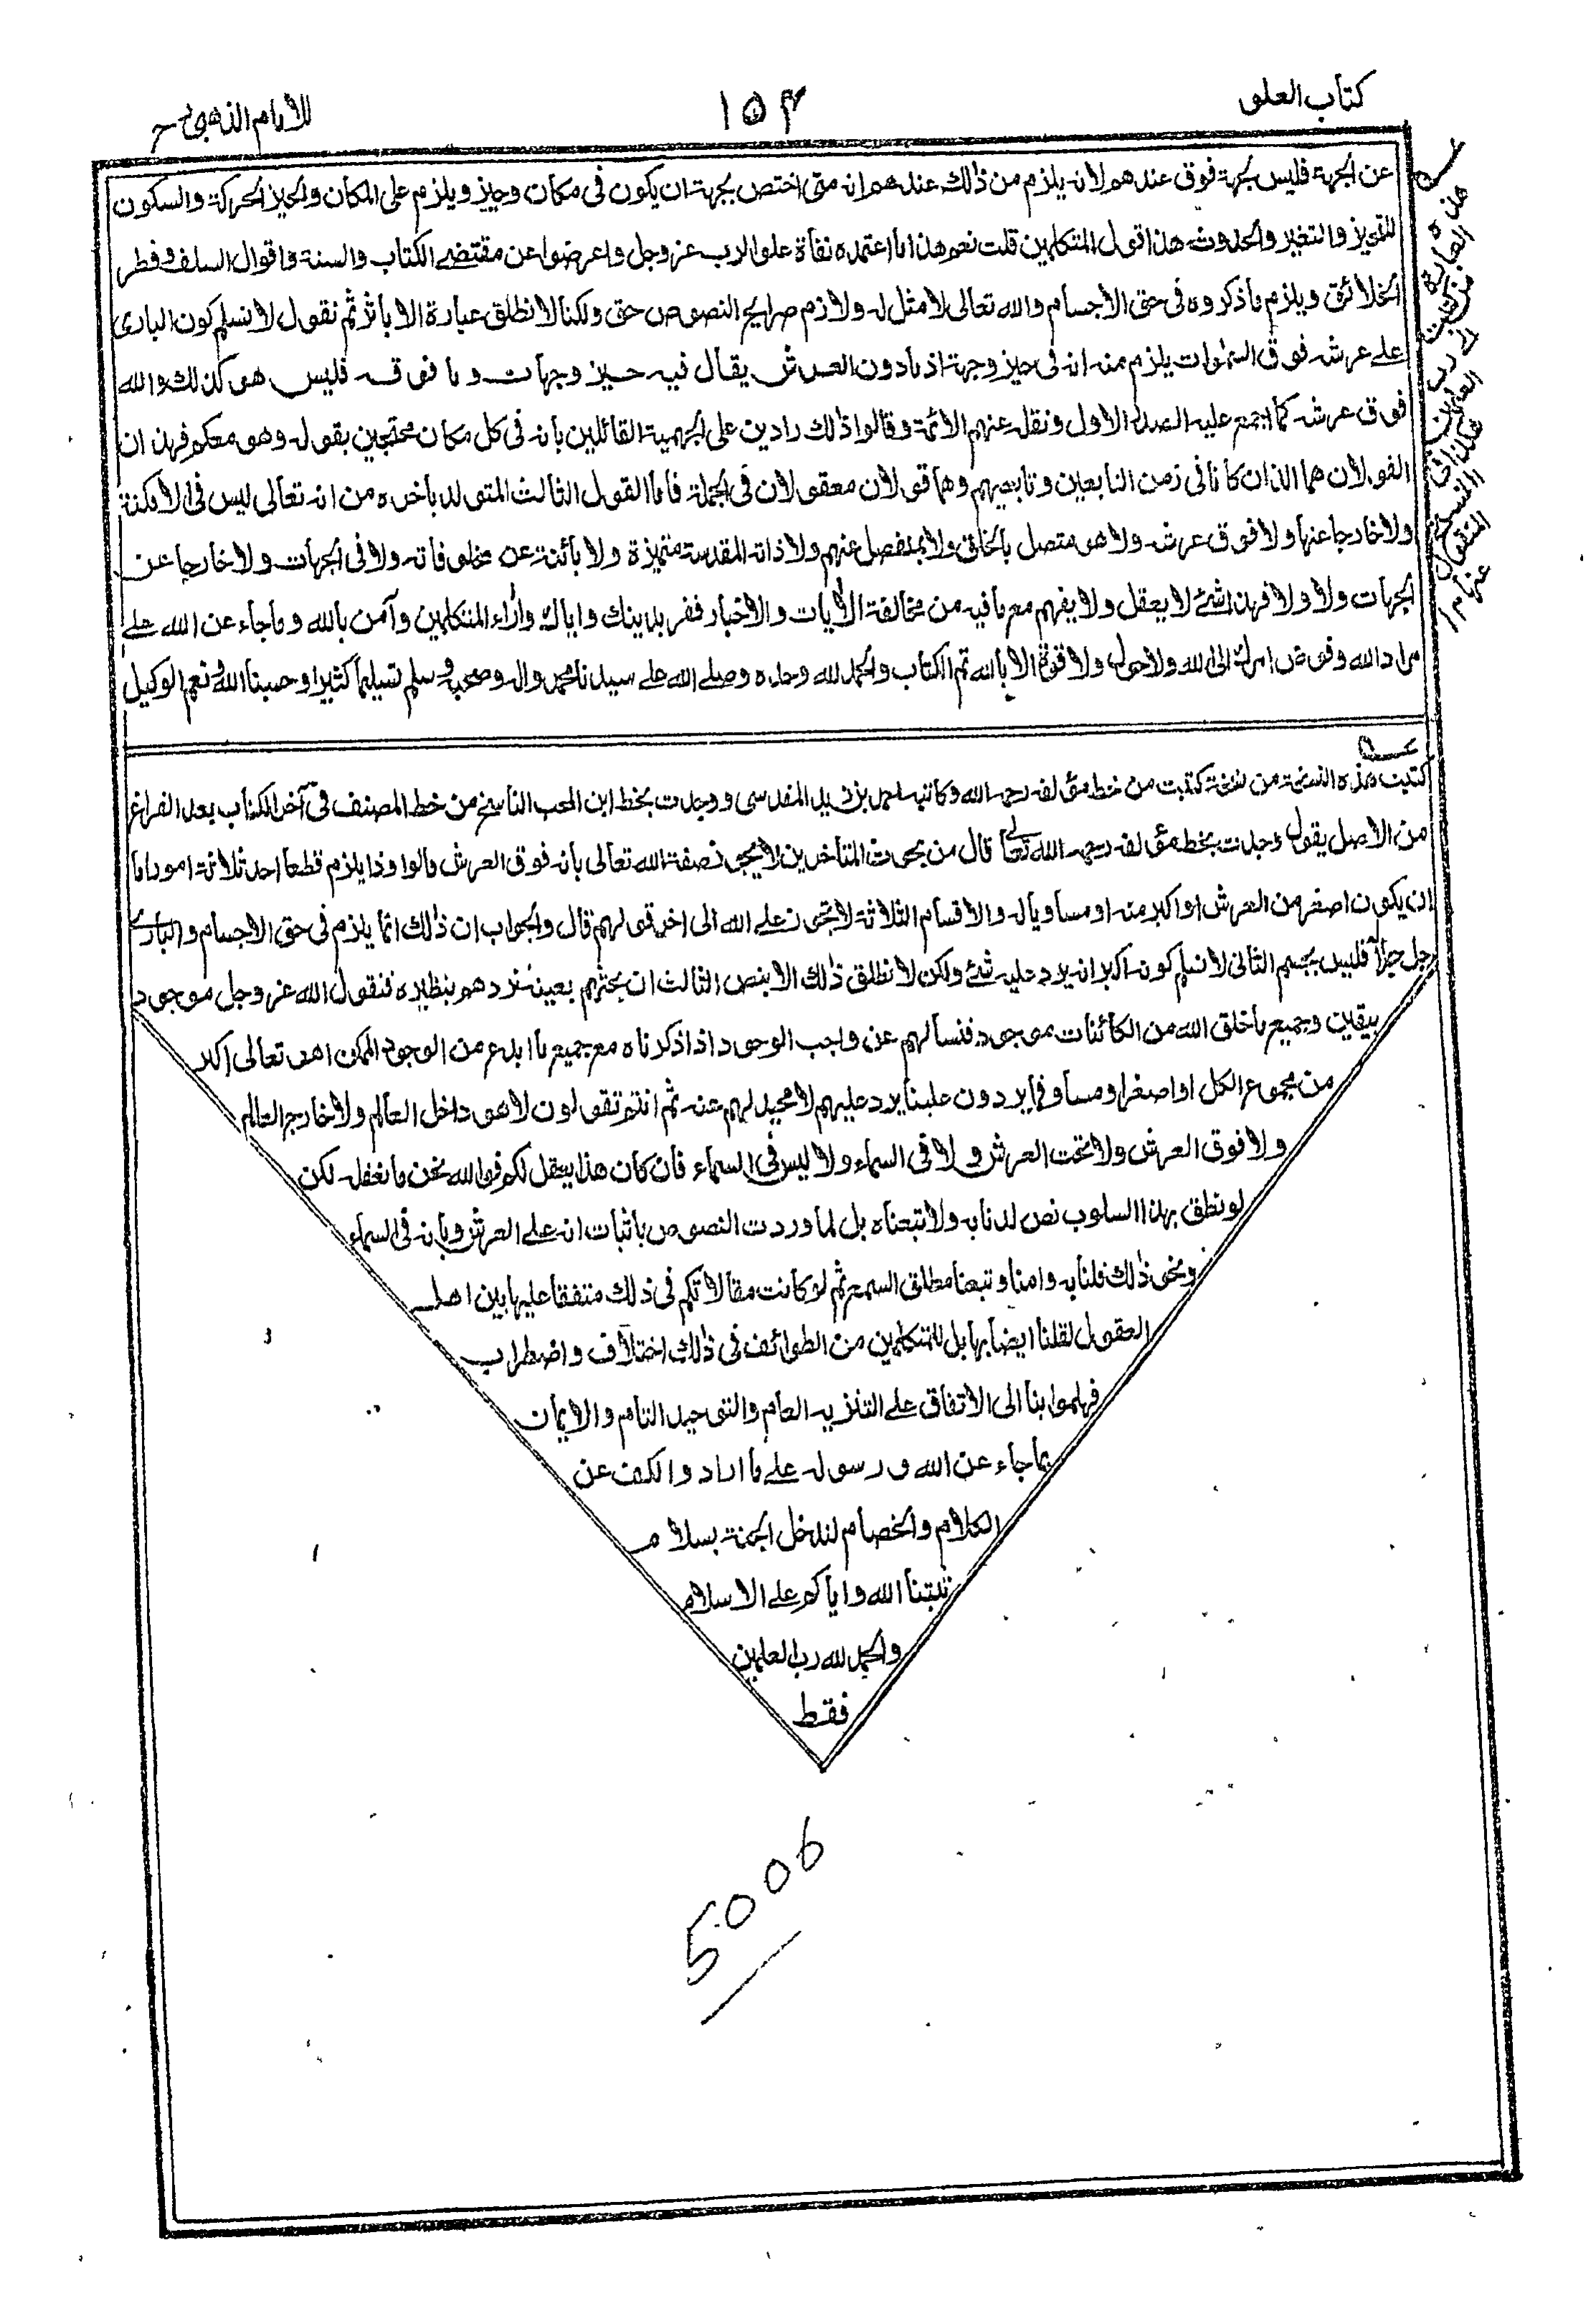 كتاب العلو
١٥٣
للامام الذهبي رح
عن الجهة فليس بجهة فوق عندهم لانه يلزم من ذلك عندهم انه متى اختص بجهة ان يكون في مكان وحيز ويلزم على المكان والحيز الحركة والسكون
للتميز والتغير والحدوث هذا قول المتكلمين قلت نعم هذا ما اعتمده نفاة علو الرب عز وجل واعرضوا عن مقتضى الكتاب والسنة واقوال السلف وفطر
الخلائق ويلزم ما ذكروه في حق الاجسام والله تعالى لا مثل له ولازم صرايح النصوص حق ولكنا لا نطلق عبارة الا باثر ثم نقول لا نسلم كون البارى
على عرشه فوق السموات يلزم منه انه في حيز وجهة اذ ما دون العرش يقال فيه حيز وجهات وما فوقه فليس هو كذلك والله
فوق عرشه كما اجمع عليه الصدر الاول ونقله عنهم الائمة وقالوا ذلك رادين على الجهمية القائلين بانه في كل مكان محتجين بقوله وهو معكم فهذان
القولان هما اللذان كانا في زمن التابعين وتابعيهم وهما قولان معقولان في الجملة فاما القول الثالث المتولد باخره من انه تعالى ليس في الامكنة
ولا خارجا عنها ولا فوق عرشه ولا هو متصل بالخلق ولا بمنفصل عنهم ولا ذاته المقدسة متميزة ولا بائنة عن مخلوقاته ولا في الجهات ولا خارجا عن
الجهات ولا ولا فهذا شئ لا يعقل ولا يفهم مع ما فيه من مخالفة الأيات والاخبار ففر بدينك واياك وأراء المتكلمين وآمن بالله وما جاء عن الله على
مراد الله وفوض امرك الى الله ولا حول ولا قوة الا بالله تم الكتاب والحمد لله وحده وصلى الله على سيدنا محمد واله وصحبه وسلم تسليما كثيرا وحسبنا الله ونعم الوكيل
هذه
العبارة
من
المنقول
عنها
كتبت هذه النسخة من نسخة كتبت من خط مؤلفه رحمه الله وكاتبه احمد بن زيد المقدسي ووجدت بخط ابن المحب الناسخ من خط المصنف في آخر الكتاب بعد الفراغ
من الاصل يقول وجدت بخط مؤلفه رحمه الله تعالى قال من بحوث المتأخرين لا يجوز صفة الله تعالى بانه فوق العرش قالوا وذا يلزم قطعا احد ثلاثة امور اما
ان يكون اصغر من العرش او اكبر منه او مساويا له والاقسام الثلاثة لا تجوز على الله الى اخر قولهم قال والجواب ان ذلك انما يلزم في حق الاجسام والبارى
جل جلاله فليس بجسم الثاني لا نسلم كونه اكبر انه يرد عليه شئ ولكن لا نطلق ذلك الا بنص الثالث ان بحثهم بعينه نردهم بنظيره فنقول الله عز وجل موجود
بيقين وجميع ما خلق الله من الكائنات موجود فنسالهم عن واجب الوجود اذا ذكرناه مع جميع ما ابدع من الوجود الممكن اهو تعالى اكبر
من مجموع الكل او اصغر او مساو فما يردون علينا يرد عليهم لا محيد لهم عنه ثم انتم تقولون لا هو داخل العالم ولا خارج العالم
ولا فوق العرش ولا تحت العرش ولا في السماء ولا ليس في السماء فان كان هذا يعقل لكم فوالله نحن ما نعقله لكن
لو نطق بهذا السلوب نص لدنا به ولاتبعناه بل لما وردت النصوص باثبات انه على العرش وبانه في السماء
ونحو ذلك قلنا به وامنا وتبعنا مطلق السمع ثم لو كانت مقالاتكم في ذلك متفقا عليها بين اهل
العقول لقلنا ايضا بها بل للمتكلمين من الطوائف في ذلك اختلاف واضطراب
فهلموا بنا الى الاتفاق على التنزيه العام والتوحيد التام والايمان
بما جاء عن الله ورسوله على ما اراد والكف عن
الكلام والخصام لندخل الجنة بسلام
ثبتنا الله واياكم على الاسلام
والحمد لله رب العلمين
فقط
5006